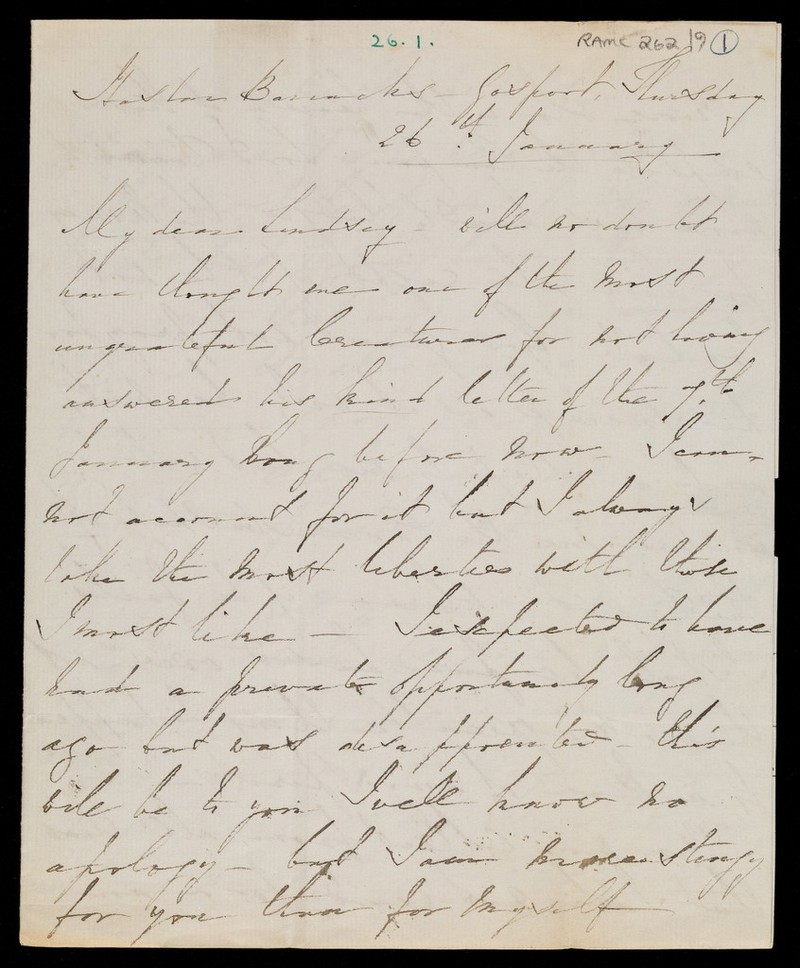 26.1.
RAMC 262/9 (1)
Haslar Barracks - Gosport, Thursday
26th January
My dear Lindsay - will no doubt
have thought me one of the most
ungrateful Creatures for not having
answered his kind letter of the 7th
January long before now - I can-
not account for it but I always
take the most liberties with those
I most like - I expected to have
had a private Opportunity long
ago but was disappointed - this
will be to you I well know no
apology - but I am more stingy
for you than for myself